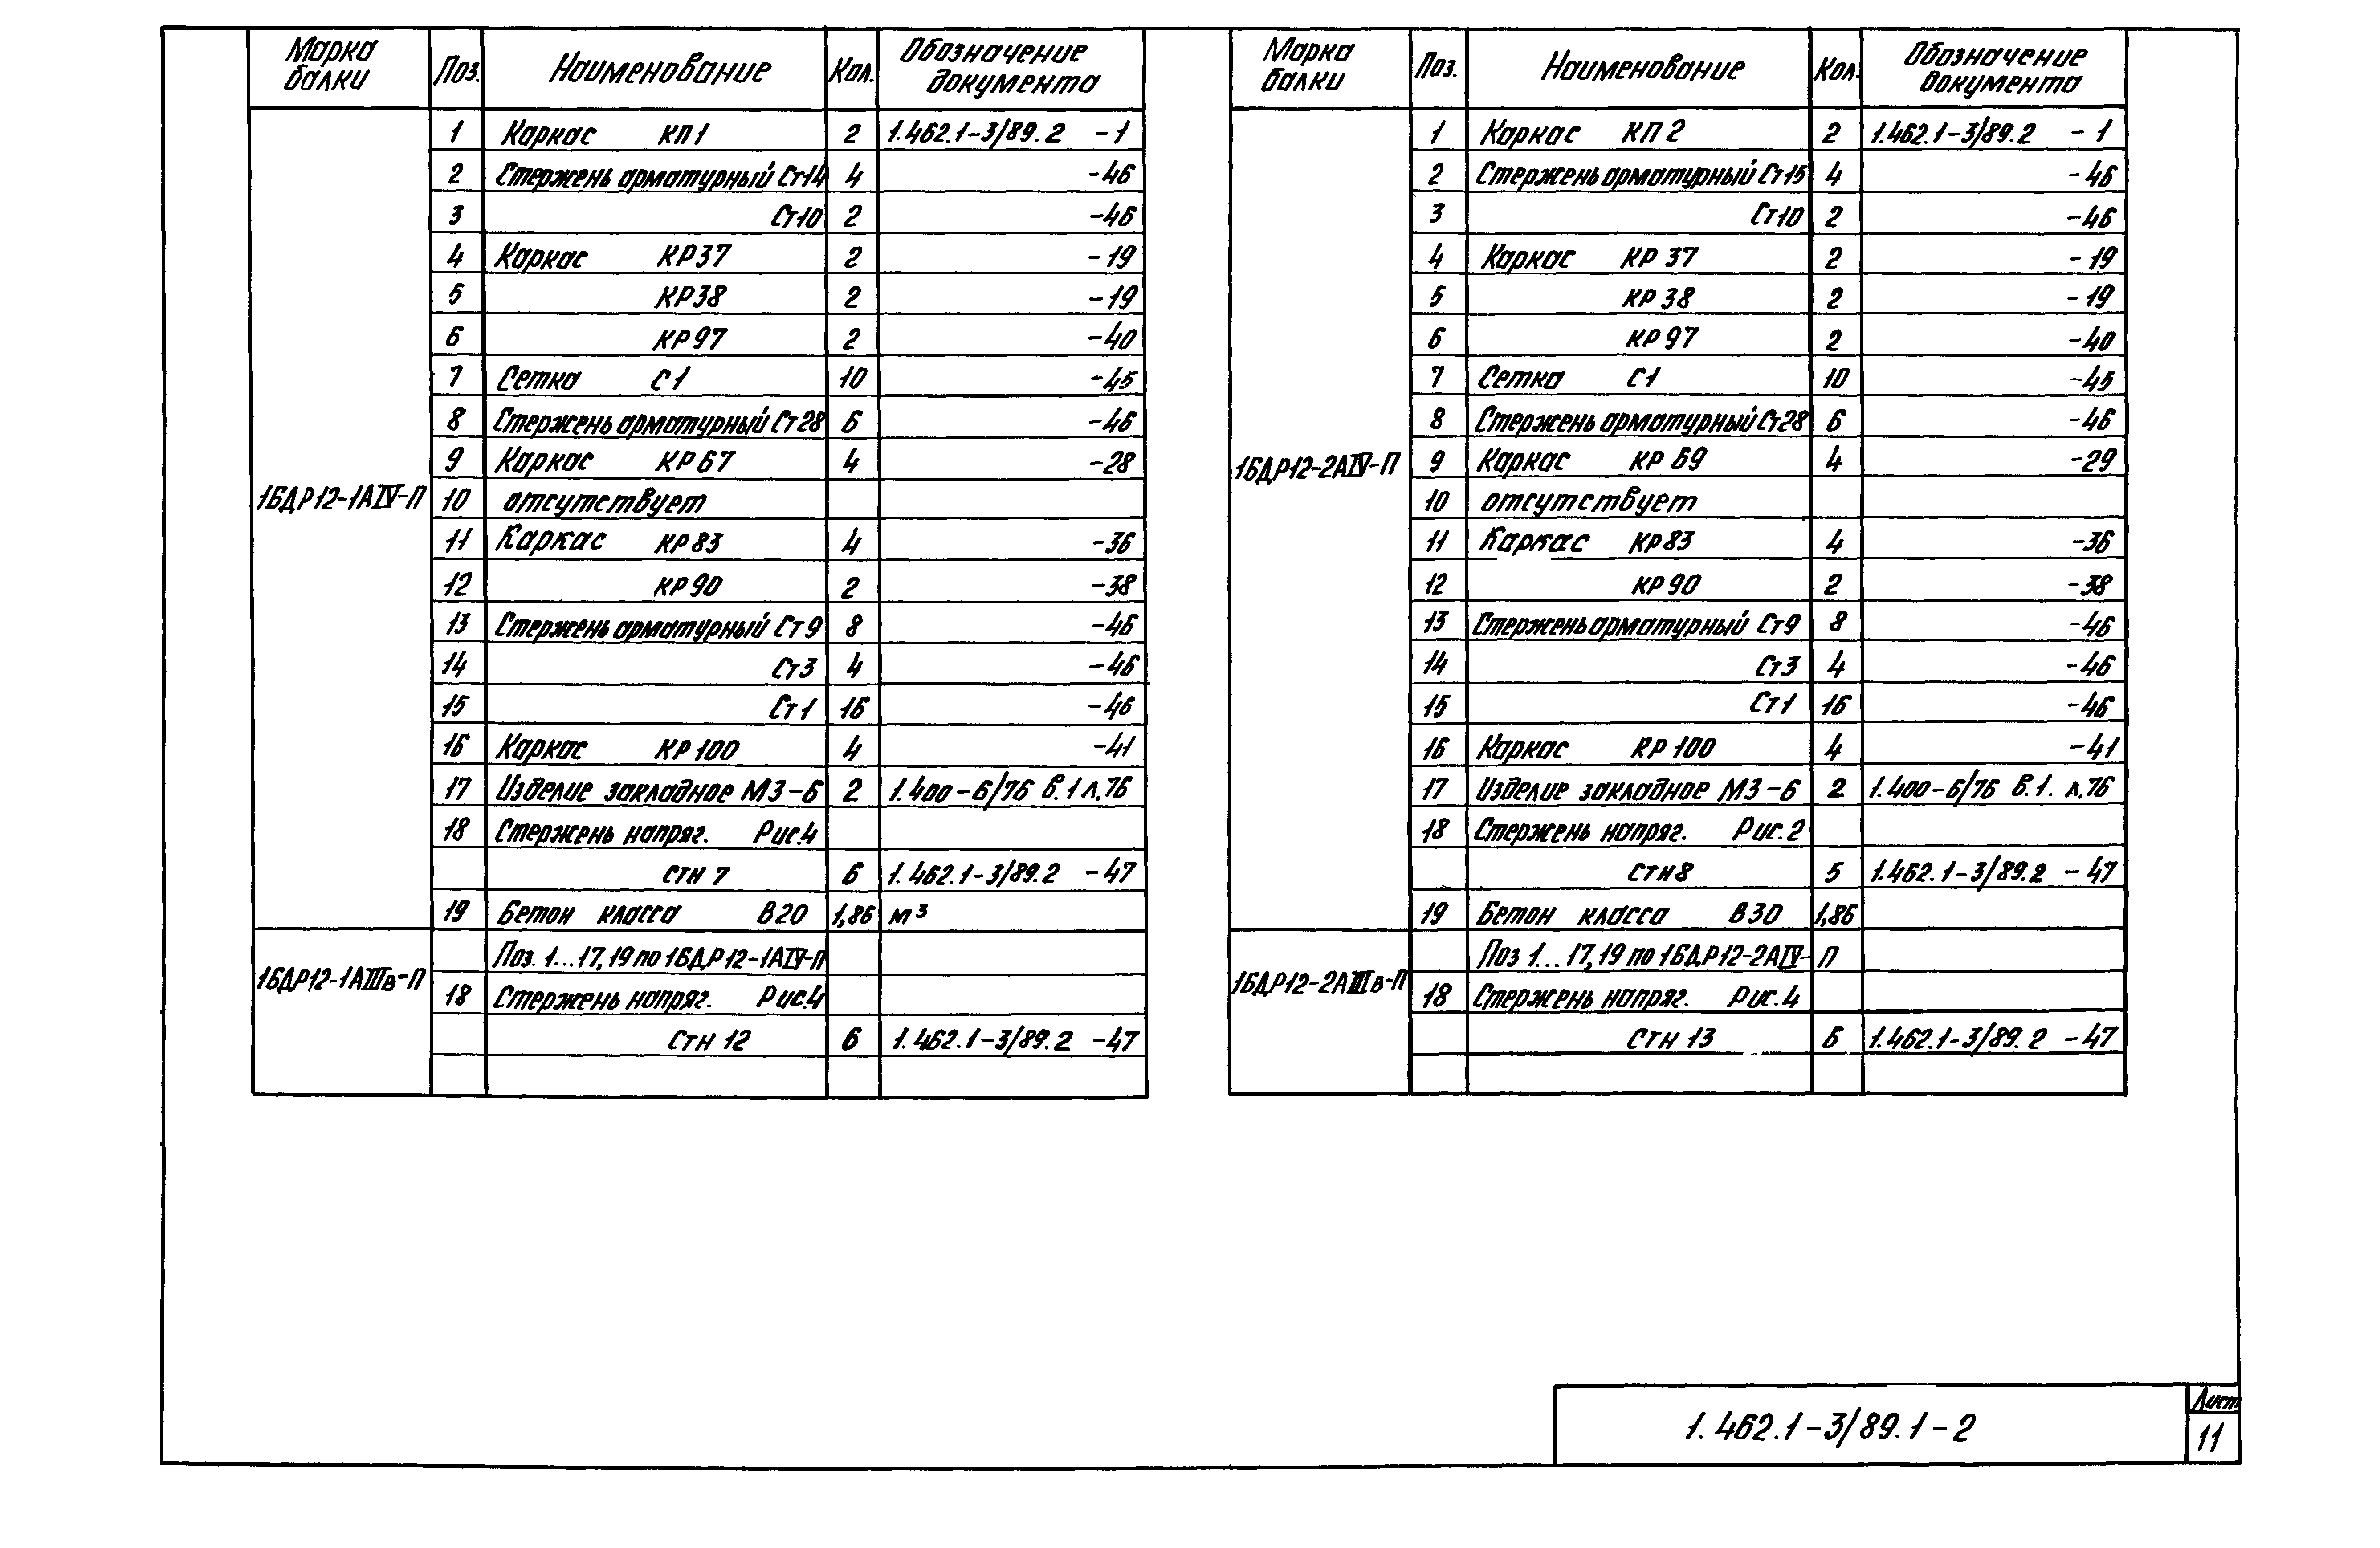 Марка балки Поз. Наименование Кол. Обозначение документа
1БДР12-1АIV-П
1 Каркас КП1 2 1.462.1-3/89.2 -1
2 Стержень арматурный Ст14 4 -46
3 Ст10 2 -46
4 Каркас КР37 2 -19
5 КР38 2 -19
6 КР97 2 -40
7 Сетка С1 10 -45
8 Стержень арматурный Ст28 6 -46
9 Каркас КР67 4 -28
10 отсутствует
11 Каркас КР83 4 -36
12 КР90 2 -38
13 Стержень арматурный Ст9 8 -46
14 Ст3 4 -46
15 Ст1 16 -46
16 Каркас КР100 4 -41
17 Изделие закладное М3-6 2 1.400-6/76 в.1 л.76
18 Стержень напряг. Рис.4
стн 7 6 1.462.1-3/89.2 -47
19 Бетон класса В20 1,86 м³
1БДР12-1АIIIв-П
Поз. 1...17,19 по 1БДР12-1АIV-П
18 Стержень напряг. Рис.4
Стн 12 6 1.462.1-3/89.2 -47
Марка балки Поз. Наименование Кол. Обозначение документа
1БДР12-2АIV-П
1 Каркас КП2 2 1.462.1-3/89.2 -1
2 Стержень арматурный Ст15 4 -46
3 Ст10 2 -46
4 Каркас КР 37 2 -19
5 КР 38 2 -19
6 КР 97 2 -40
7 Сетка С1 10 -45
8 Стержень арматурный Ст28 6 -46
9 Каркас КР 69 4 -29
10 отсутствует
11 Каркас КР83 4 -36
12 КР90 2 -38
13 Стержень арматурный Ст9 8 -46
14 Ст3 4 -46
15 Ст1 16 -46
16 Каркас КР 100 4 -41
17 Изделие закладное М3-6 2 1.400-6/76 в.1. л.76
18 Стержень напряг. Рис.2
стн8 5 1.462.1-3/89.2 -47
19 Бетон класса В30 1,86
1БДР12-2АIIIв-П
Поз 1...17,19 по 1БДР12-2АIV-П
18 Стержень напряг. Рис.4
стн 13 6 1.462.1-3/89.2 -47
1.462.1-3/89.1-2
Лист
11